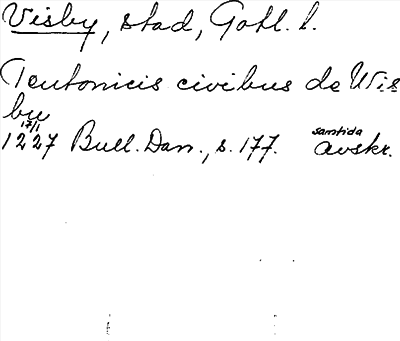 Visby, stad, Gotl. l.
Teutonicis civibus de Wis
by
17/1
1227 Bull. Dan., s. 177. samtida avskr.